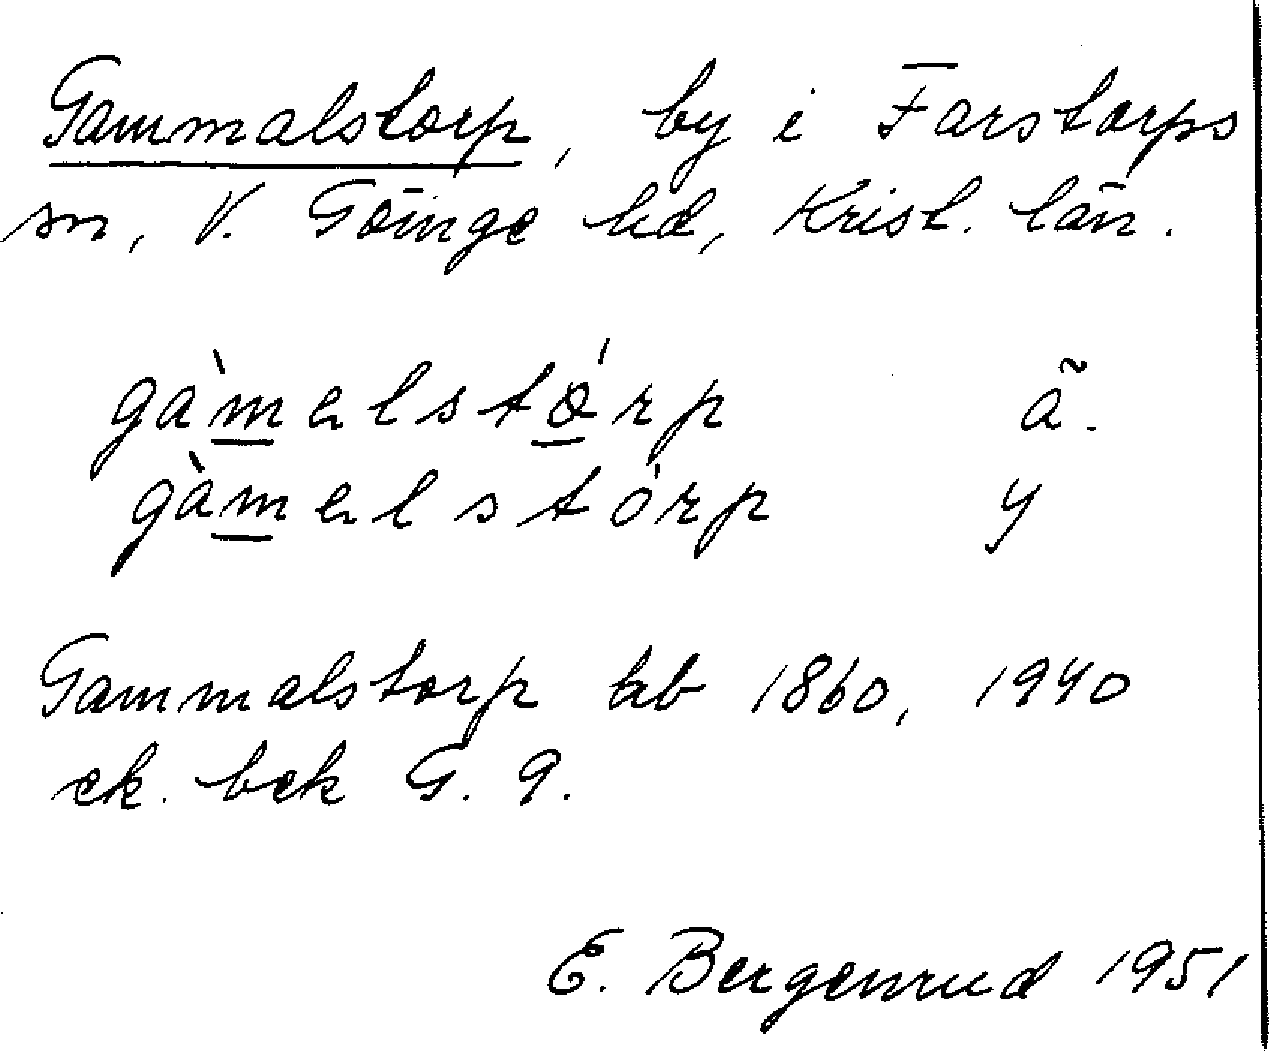 Gammalstorp, by i Farstorps
sn, V. Göinge hd, Krist. län.
gàmelstǿrp ä.
gàmelstórp y
Gammalstorp tab 1860, 1940
ek. bek G. 9.
E. Bergenrud 1951